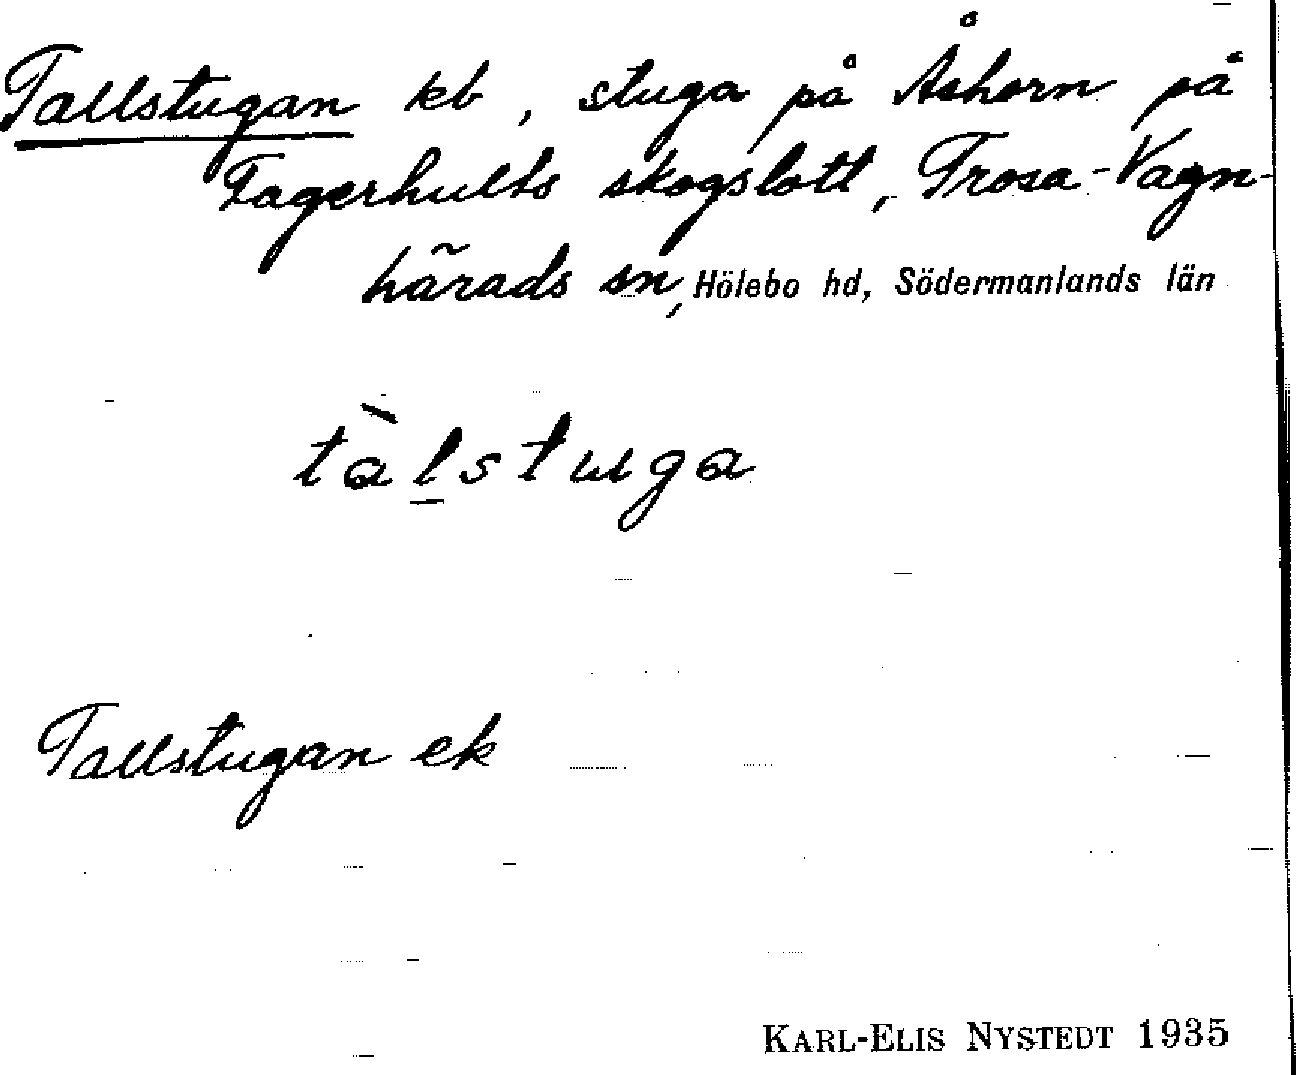 Tallstugan kb, stuga på Åshorn på
Fagerhults skogslott, Trosa-Vagn-
härads sn, Hölebo hd, Södermanlands län
tàl̲stuga
Tallstugan ek
KARL-ELIS NYSTEDT 1935